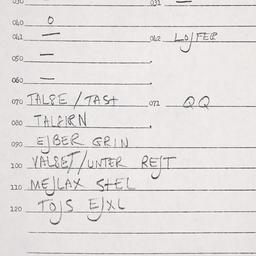 030 — 031 —
040 O
041 — 042 LOJFER
050 —
060 —
070 TALSE / TAST 071 QQ
080 TALFIRN
090 EJBER GRIN
100 VALSET/UNTER REJT
110 MEJLAX STEL
120 TOJS EJXL